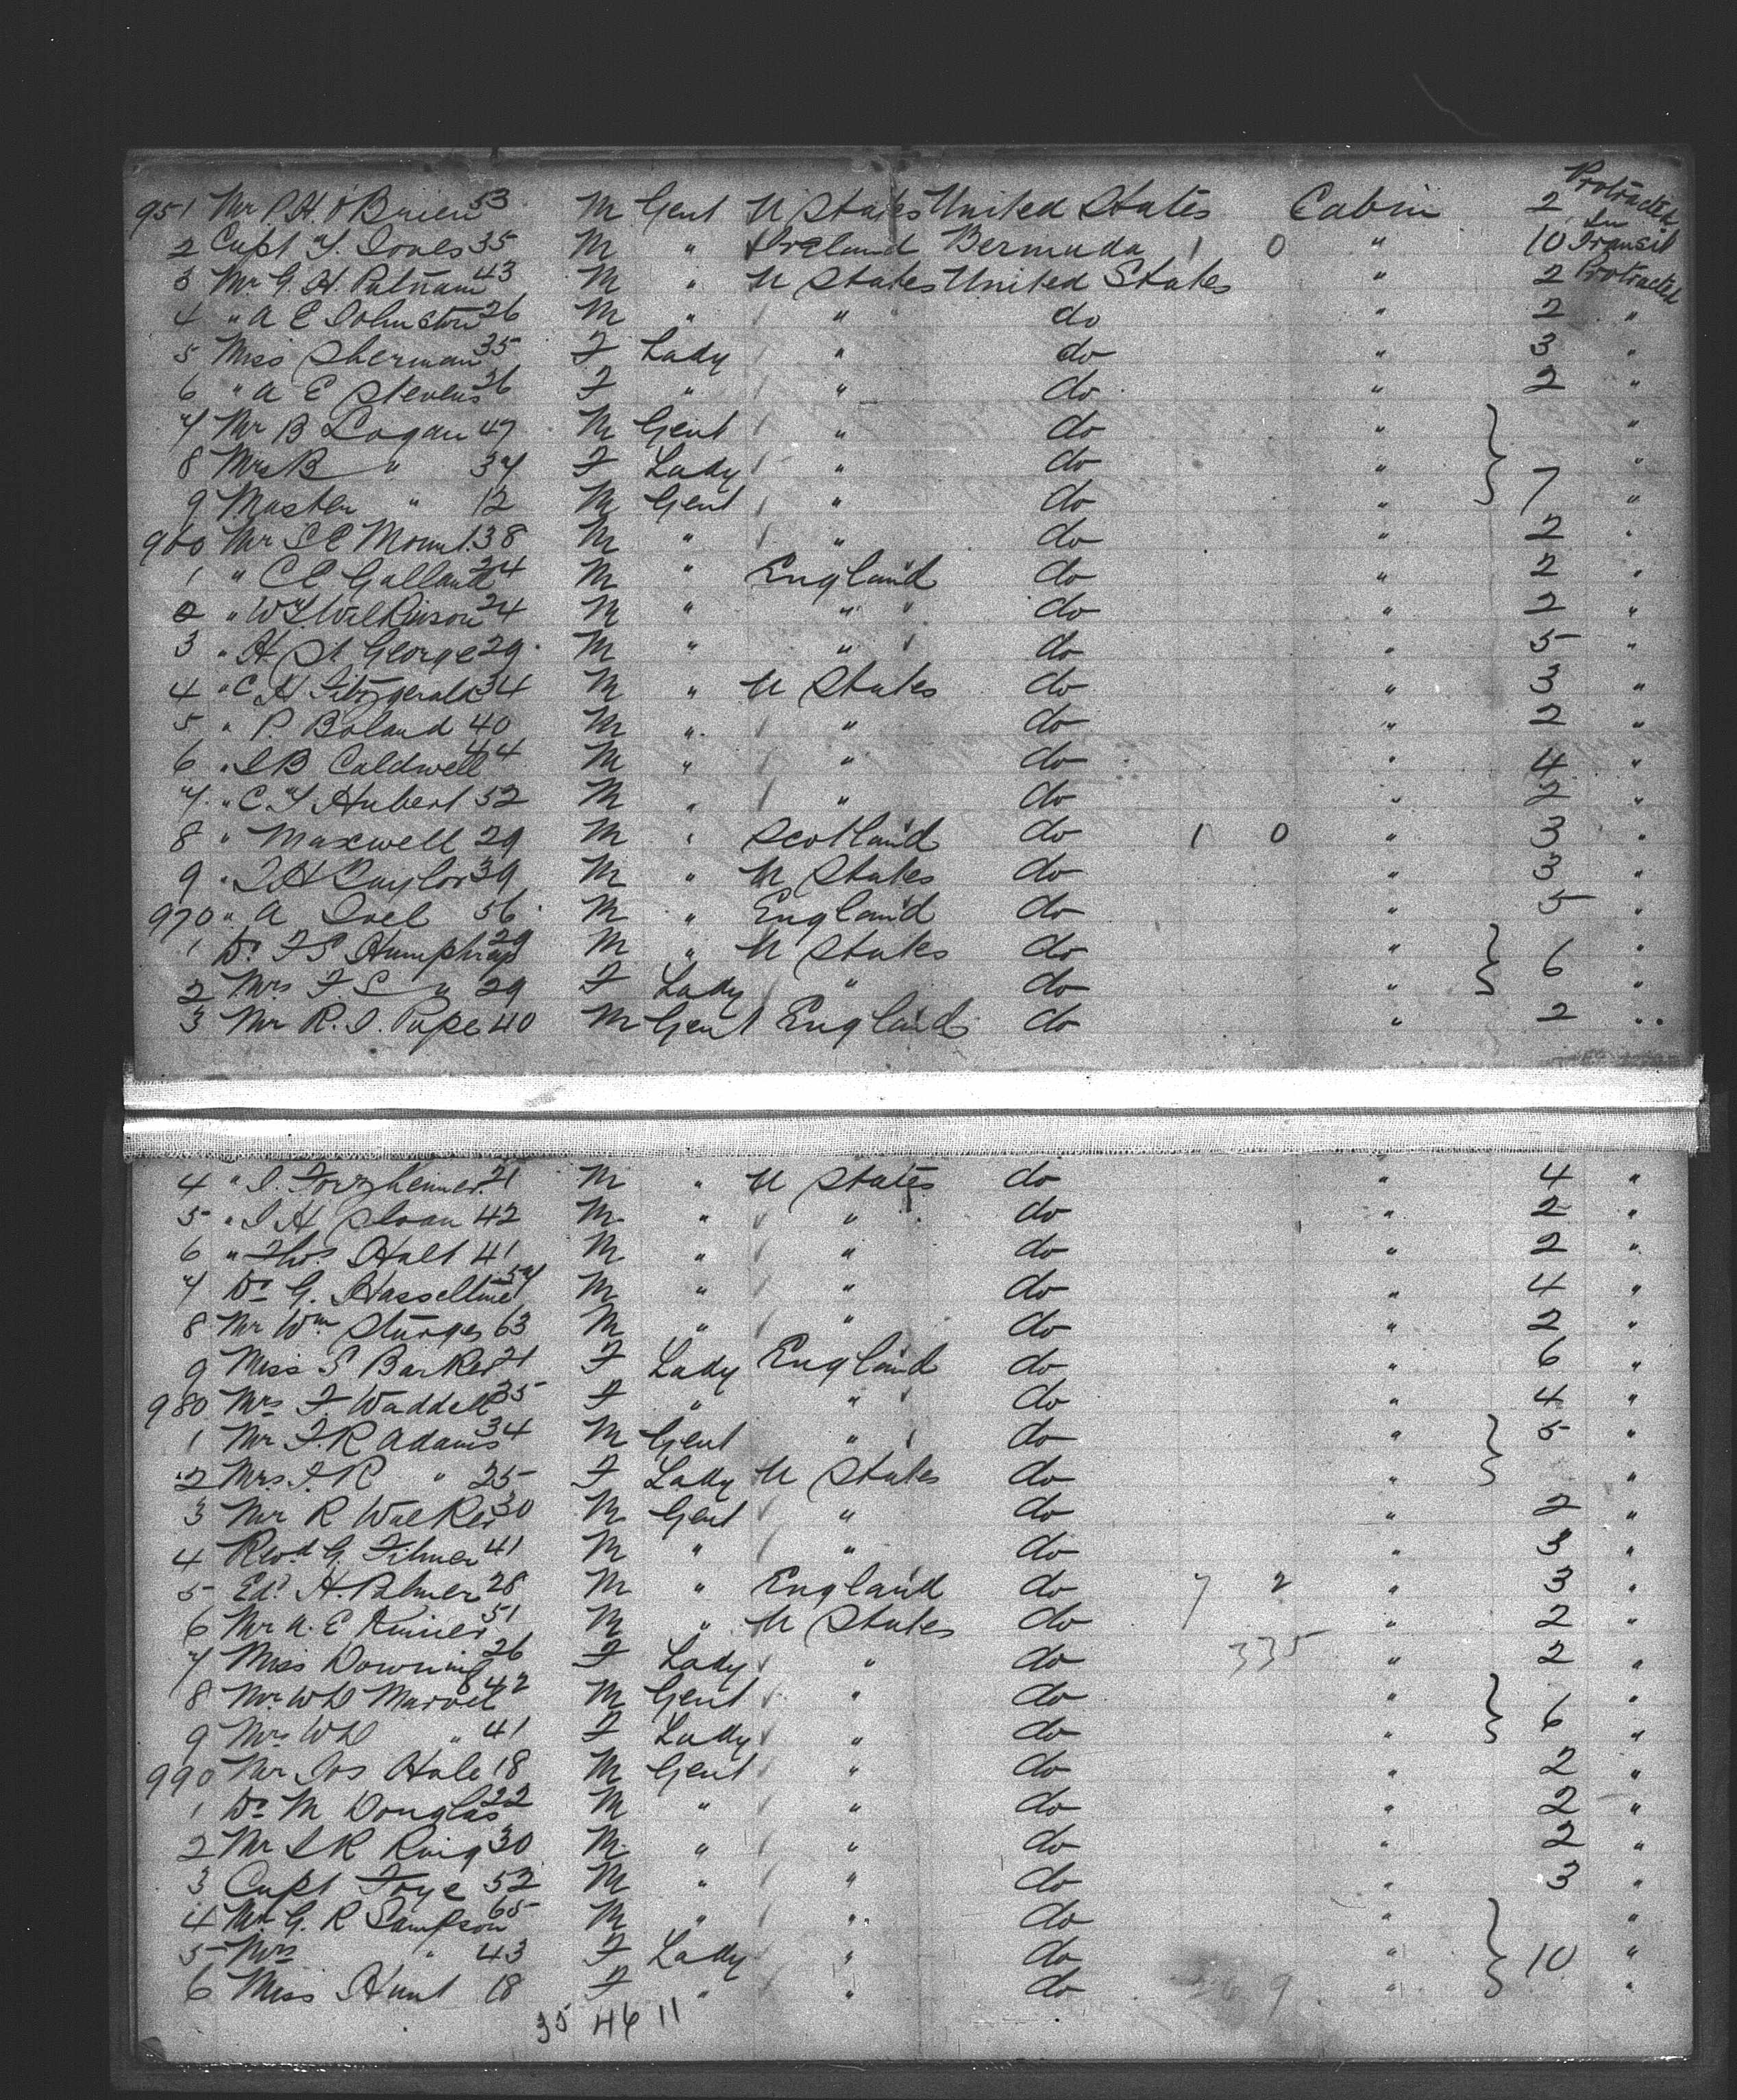 951 Mr P. H. O'Brien 53 M Gent U States United States Cabin 2 Protracted
2 Capt T. Jones 35 M " Ireland Bermuda 1 0 " 10 In Transit
3 Mr G. H. Putnam 43 M " U States United States " 2 Protracted
4 " A E Johnston 26 M " " do " 2 "
5 Miss Sherman 35 F Lady " do " 3 "
6 " A E Stevens 26 F " " do " 2 "
7 Mr B Logan 47 M Gent " do " "
8 Mrs B " 37 F Lady " do " 7 "
9 Master " 12 M Gent " do " "
960 Mr S E Mount 38 M " " do " 2 "
1 " C E Galland 24 M " England do " 2 "
2 " W T Wilkinson 24 M " " do " 2 "
3 " H St George 29 M " " do " 5 "
4 " C H Fitzgerald 34 M " U States do " 3 "
5 " P. Boland 40 M " " do " 2 "
6 " J B Caldwell 44 M " " do " 4 "
7 " C T Hubert 52 M " " do " 2 "
8 " Maxwell 29 M " Scotland do 1 0 " 3 "
9 " J H Taylor 39 M " U States do " 3 "
970 " A Joel 56 M " England do " 5 "
1 Dr F S Humphreys 29 M " U States do " 6 "
2 Mrs F S " 29 F Lady " do " "
3 Mr R. J. Pope 40 M Gent England do " 2 "
4 " J. 21 M " U States do " 4 "
5 " J H Sloan 42 M " " do " 2 "
6 " Thos Holt 41 M " " do " 2 "
7 Dr G. Hasseltine 57 M " " do " 4 "
8 Mr Wm Sturges 63 M " " do " 2 "
9 Miss S Barker 21 F Lady England do " 6 "
980 Mrs F. Waddell 35 F " " do " 4 "
1 Mr F. R Adams 34 M Gent " do " 5 "
2 Mrs F. R " 25 F Lady U States do " "
3 Mr R Walker 30 M Gent " do " 2 "
4 Revd G. Filmer 41 M " " do " 3 "
5 Ed. H. Palmer 28 M " England do 7 2 " 3 "
6 Mr A. E 51 M " U States do " 2 "
7 Miss Downing 26 F Lady " do 335 " 2 "
8 Mr W D Marvel 42 M Gent " do " 6 "
9 Mrs W D " 41 F Lady " do " "
990 Mr Jos Hale 18 M Gent " do " 2 "
1 Dr M Douglas 22 M " " do " 2 "
2 Mr S R King 30 M " " do " 2 "
3 Capt Foye 52 M " " do " 3 "
4 Mr G. R Sampson 65 M " " do " "
5 Mrs " 43 F Lady " do " 10 "
6 Miss Hunt 18 F " " do 9 " "
35 46 11